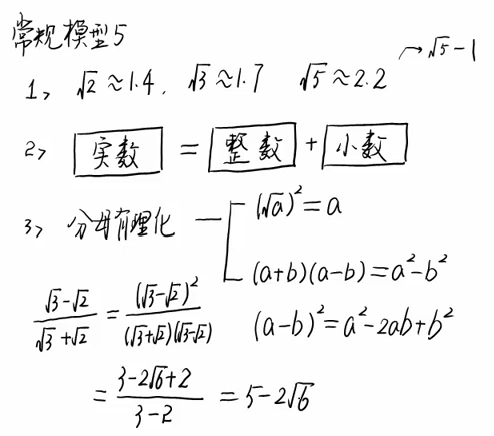 常规模型5
1, √2≈1.4, √3≈1.7 √5≈2.2 → √5-1
2, 实数 = 整数 + 小数
3, 分母有理化 — (√a)²=a
(a+b)(a-b)=a²-b²
(√3-√2)/(√3+√2) = (√3-√2)²/((√3+√2)(√3-√2)) (a-b)²=a²-2ab+b²
= (3-2√6+2)/(3-2) = 5-2√6